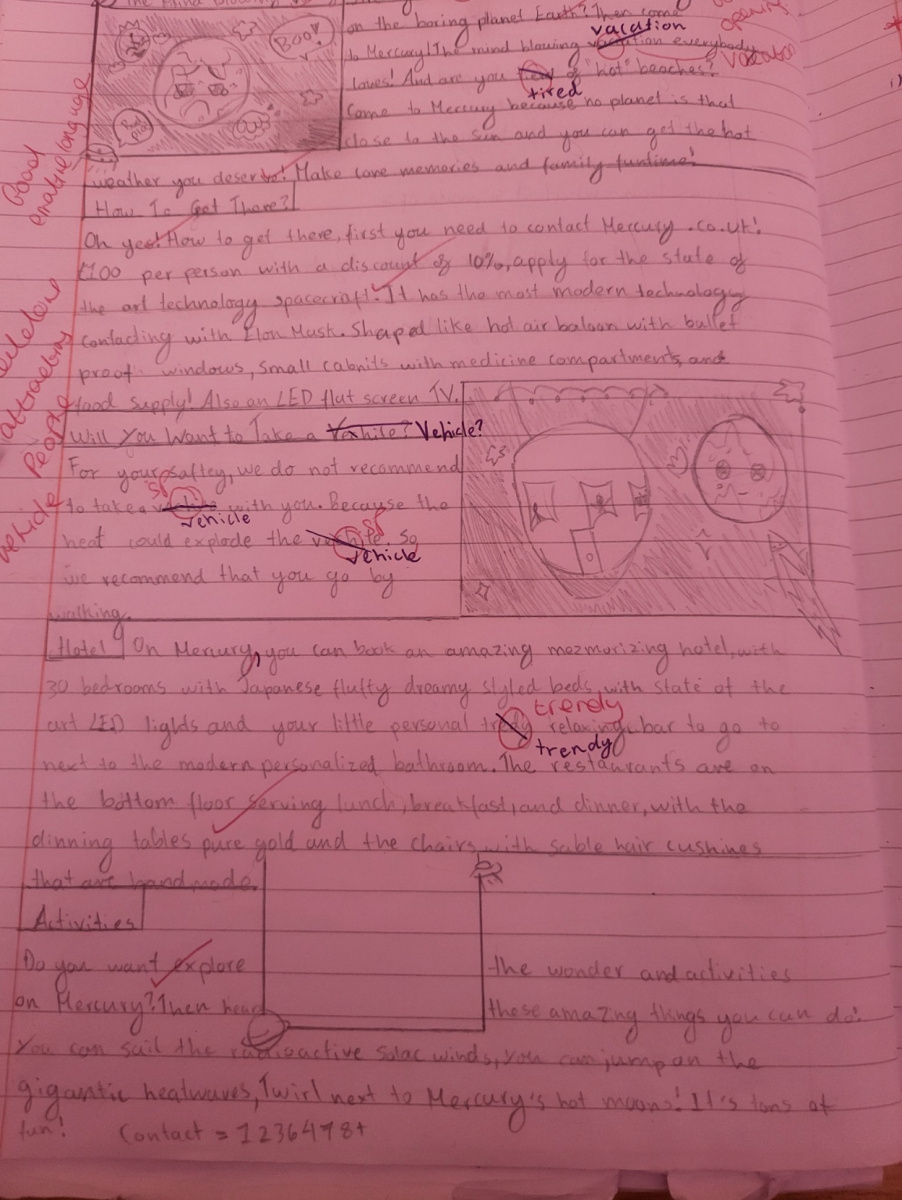 on the boring planet Earth? Then come
vacation
to Mercury! The mind blowing everybody
vacation
opening
loves! And are you of "hot" beaches?
tired
BOO!
Come to Mercury because no planet is that
close to the sun and you can get the hot
weather you deserve! Make core memories and family funtime!
Good
language
How To Get There?
Oh yes! How to get there, first you need to contact Mercury.co.uk!
£100 per person with a discount of 10%, apply for the state of
the art technology spacecraft! It has the most modern technology
contacting with Elon Musk. Shaped like hot air baloon with bullet
proof windows, small cabnits with medicine compartments, and
food supply! Also an LED flat screen TV.
attracting
People
vehicle
Will You Want to Take a Vehicle?
For your saftey, we do not recommend
sp
to take a with you. Because the
vehicle
sp
heat could explode the . So
vehicle
we recommend that you go by
walking.
Hotel On Mercury, you can book an amazing mezmorizing hotel, with
30 bedrooms with Japanese fluffy dreamy styled beds, with state of the
trendy
art LED lights and your little personal relaxing bar to go to
trendy
next to the modern personalized bathroom. The restaurants are on
the bottom floor serving lunch, breakfast, and dinner, with the
dinning tables pure gold and the chairs with sable hair cushines
that are handmade.
Activities
Do you want explore the wonder and activities
on Mercury? Then head these amazing things you can do!
You can sail the radioactive solar winds, you can jump on the
gigantic heatwaves, Twirl next to Mercury's hot moons! It's tons of
fun! Contact = 1236478+